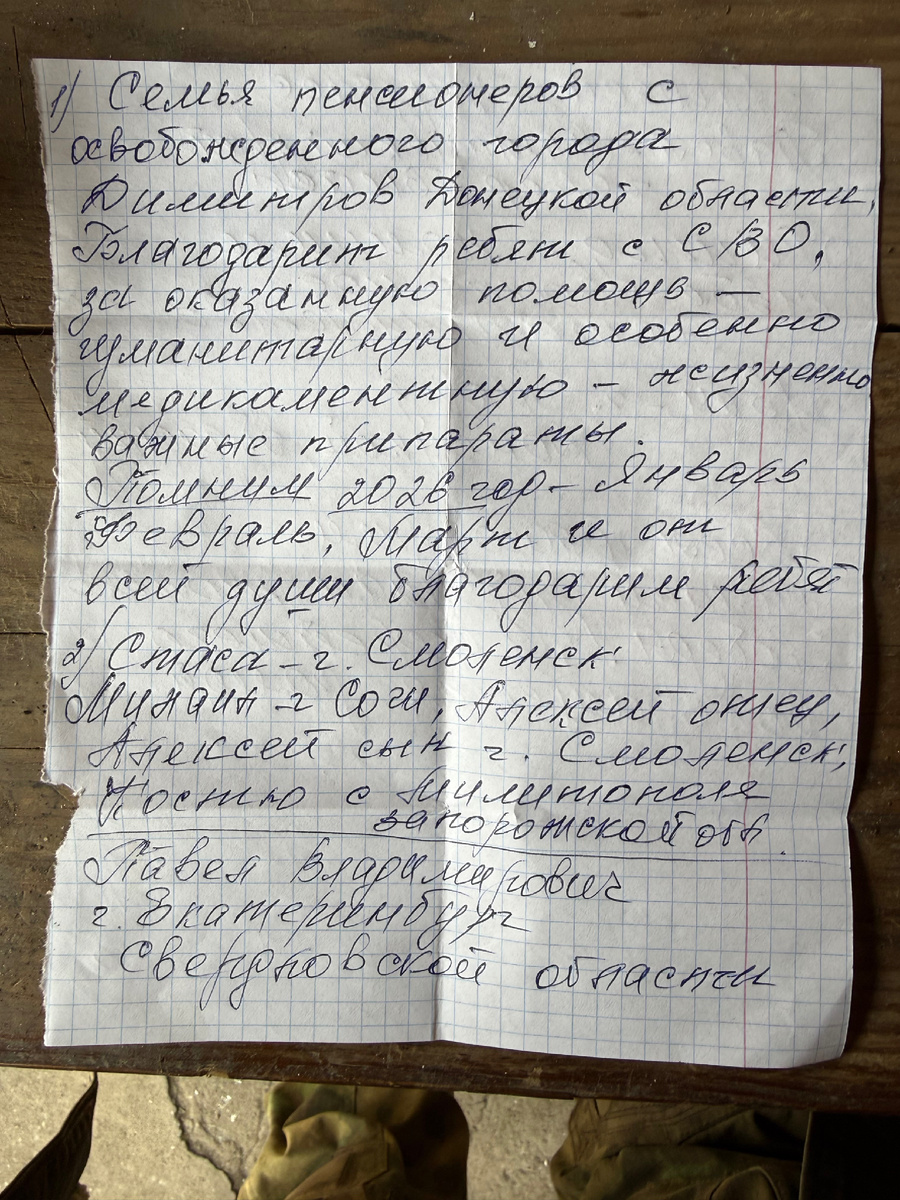 1) Семья пенсионеров с
освобожденного города
Димитров Донецкой области,
Благодарит ребят с СВО,
за оказанную помощь —
гуманитарную и особенно
медикаментную – жизненно
важные припараты.
Помним 2026 год – Январь
Февраль, Март и от
всей души благодарим ребят
2) Стаса – г. Смоленск
г Сочи, Алексей отец,
Алексей сын г. Смоленск,
Костю с Милитополя
запорожской обл.
Павел Владимирович
г. Екатеринбург
Свердловской области